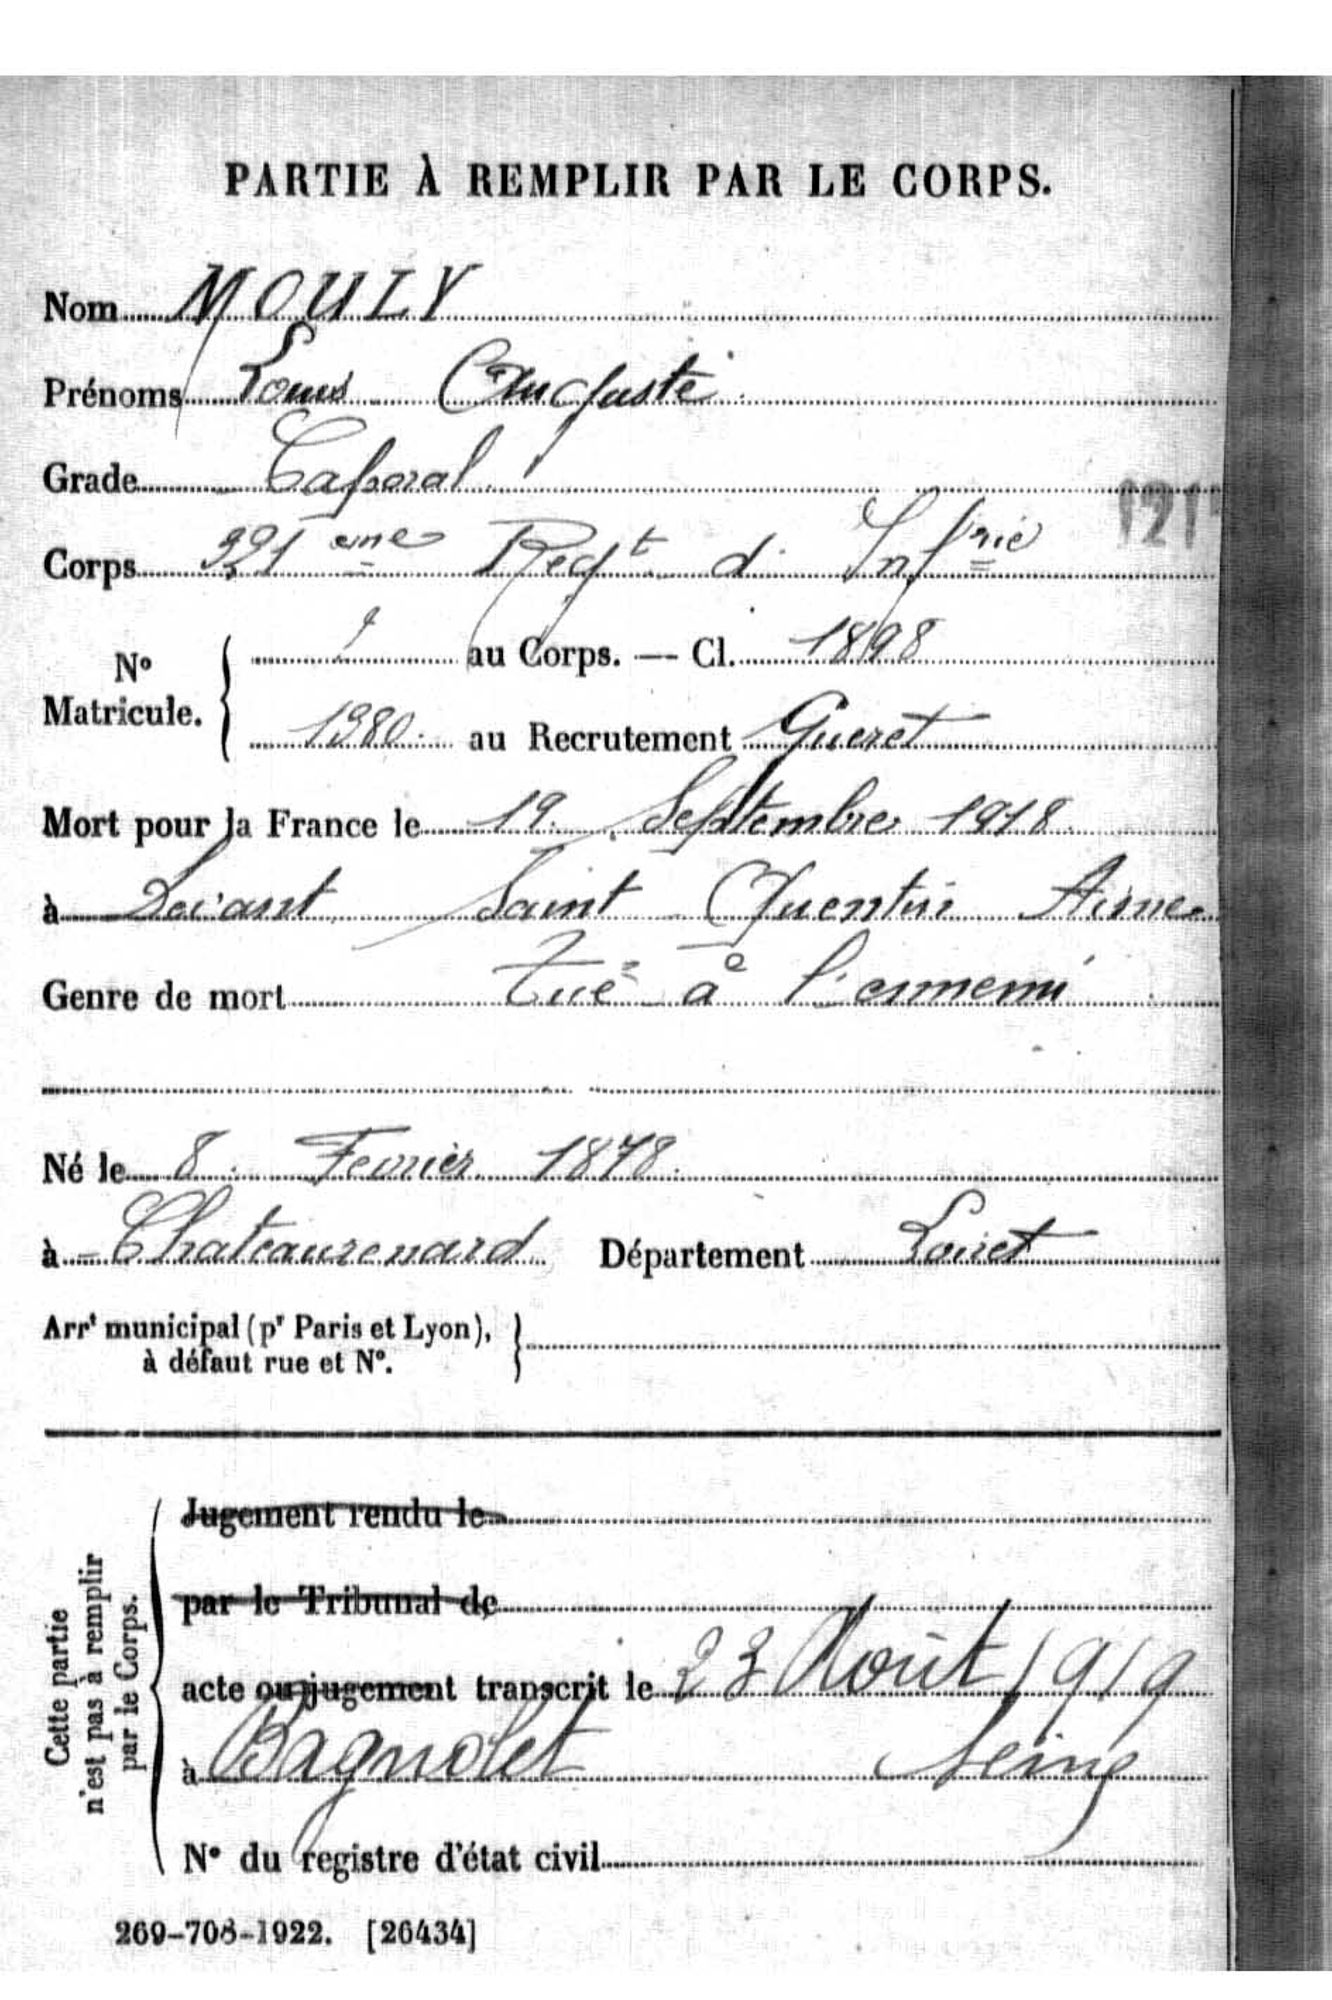 PARTIE À REMPLIR PAR LE CORPS.
Nom MOULY
Prénoms Louis Auguste
Grade Caporal
121
Corps 331 eme Regt d'Infrie
N° Matricule. au Corps. — Cl. 1898
1380 au Recrutement Gueret
Mort pour la France le 19 Septembre 1918
à Devant Saint Quentin Aisne
Genre de mort Tué à l'ennemi
Né le 8 Fevrier 1878
à Chateaurenard Département Loiret
Arrt municipal (pr Paris et Lyon),
à défaut rue et N°.
Cette partie
n'est pas à remplir
par le Corps.
Jugement rendu le
par le Tribunal de
acte ou jugement transcrit le 23 Août 1919
à Bagnolet Seine
N° du registre d'état civil
269-708-1922. [26434]